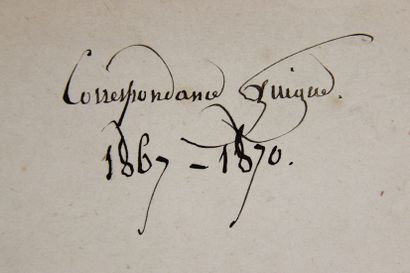 Correspondance Guigue.
1867 - 1870.